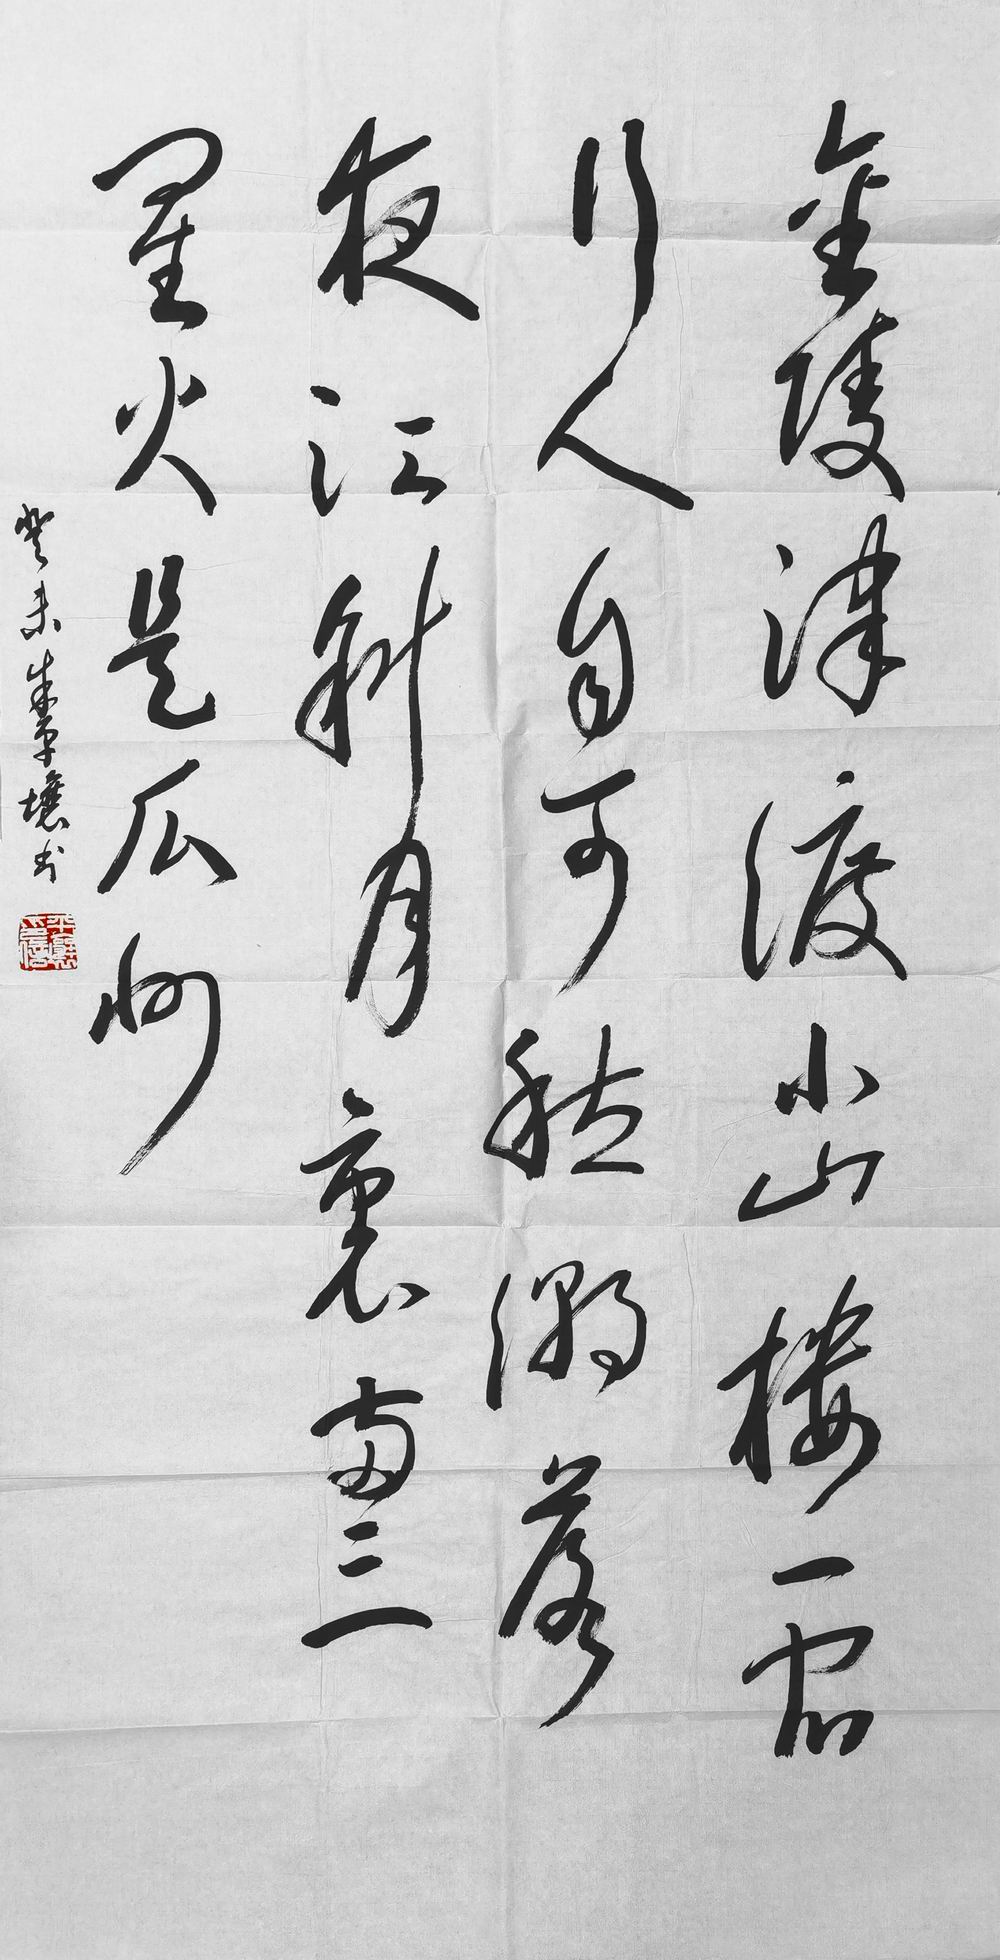 金陵津渡小山樓一宿
行人自可愁潮落
夜江斜月裏两三
星火是瓜州
癸未朱壤书